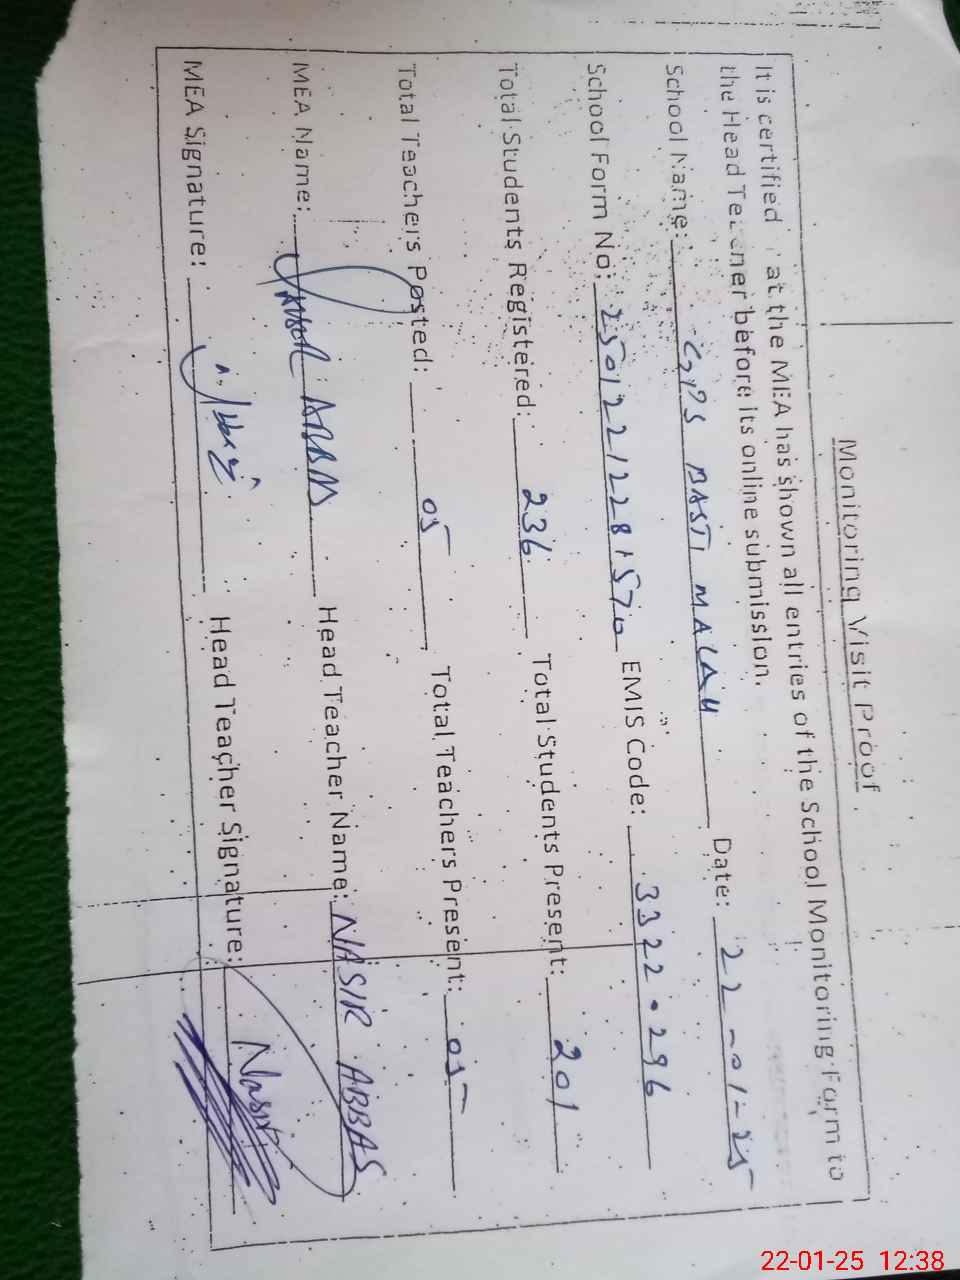 Monitoring Visit Proof
It is certified at the MEA has shown all entries of the School Monitoring Form to
the Head Teacher before its online submission.
School Name: GPS BASTI Date: 22-01-25
School Form No: 25012212281570 EMIS Code: 3322.296
Total Students Registered: 236 Total Students Present: 201
Total Teachers Posted: 05 Total Teachers Present: 05
MEA Name: Head Teacher Name: NASIR ABBAS
MEA Signature: Head Teacher Signature: Nasir
22-01-25 12:38